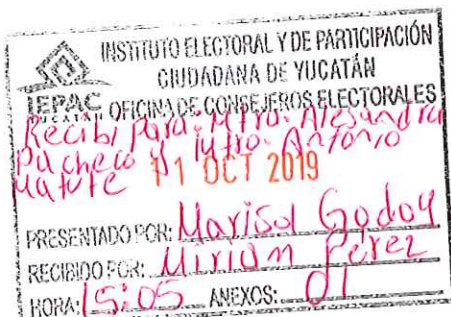 INSTITUTO ELECTORAL Y DE PARTICIPACIÓN
CIUDADANA DE YUCATÁN
IEPAC
YUCATÁN
OFICINA DE CONSEJEROS ELECTORALES
Recibi para: Mtro. Alejandra
Pacheco y Mtro. Antonio
Matute
11 OCT 2019
PRESENTADO POR: Marisol Godoy
RECIBIDO POR: Miriam Perez
HORA: 15:05 ANEXOS: 01